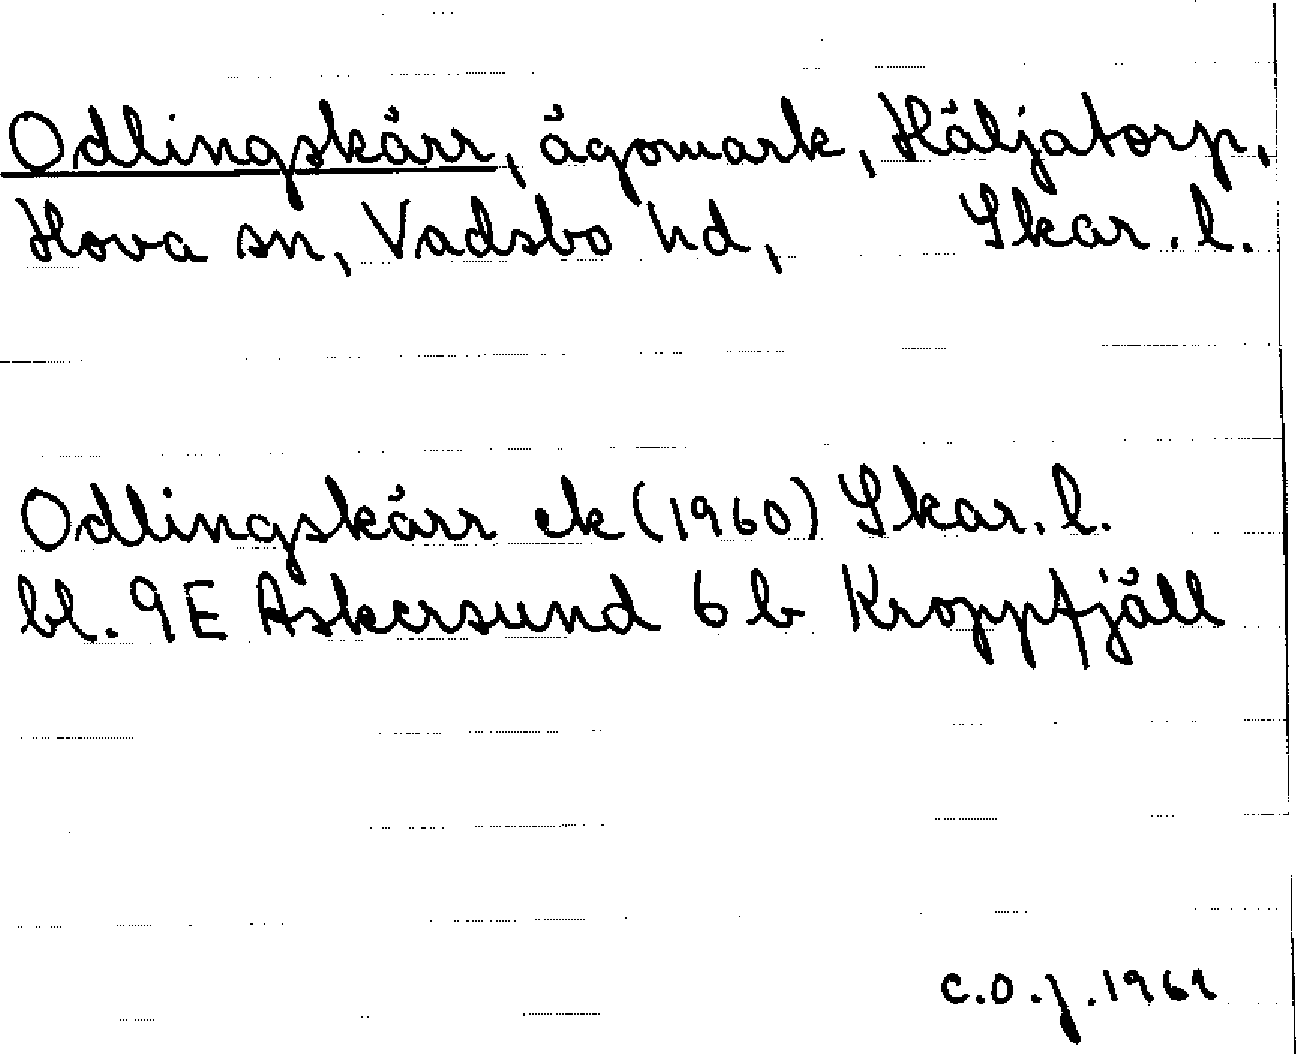 Odlingskärr, ägomark, Häljatorp,
Hova sn, Vadsbo hd, Skar. l.
Odlingskärr ek (1960) Skar. l.
bl. 9E Askersund 6 b Kroppfjäll
C.O.J. 1961